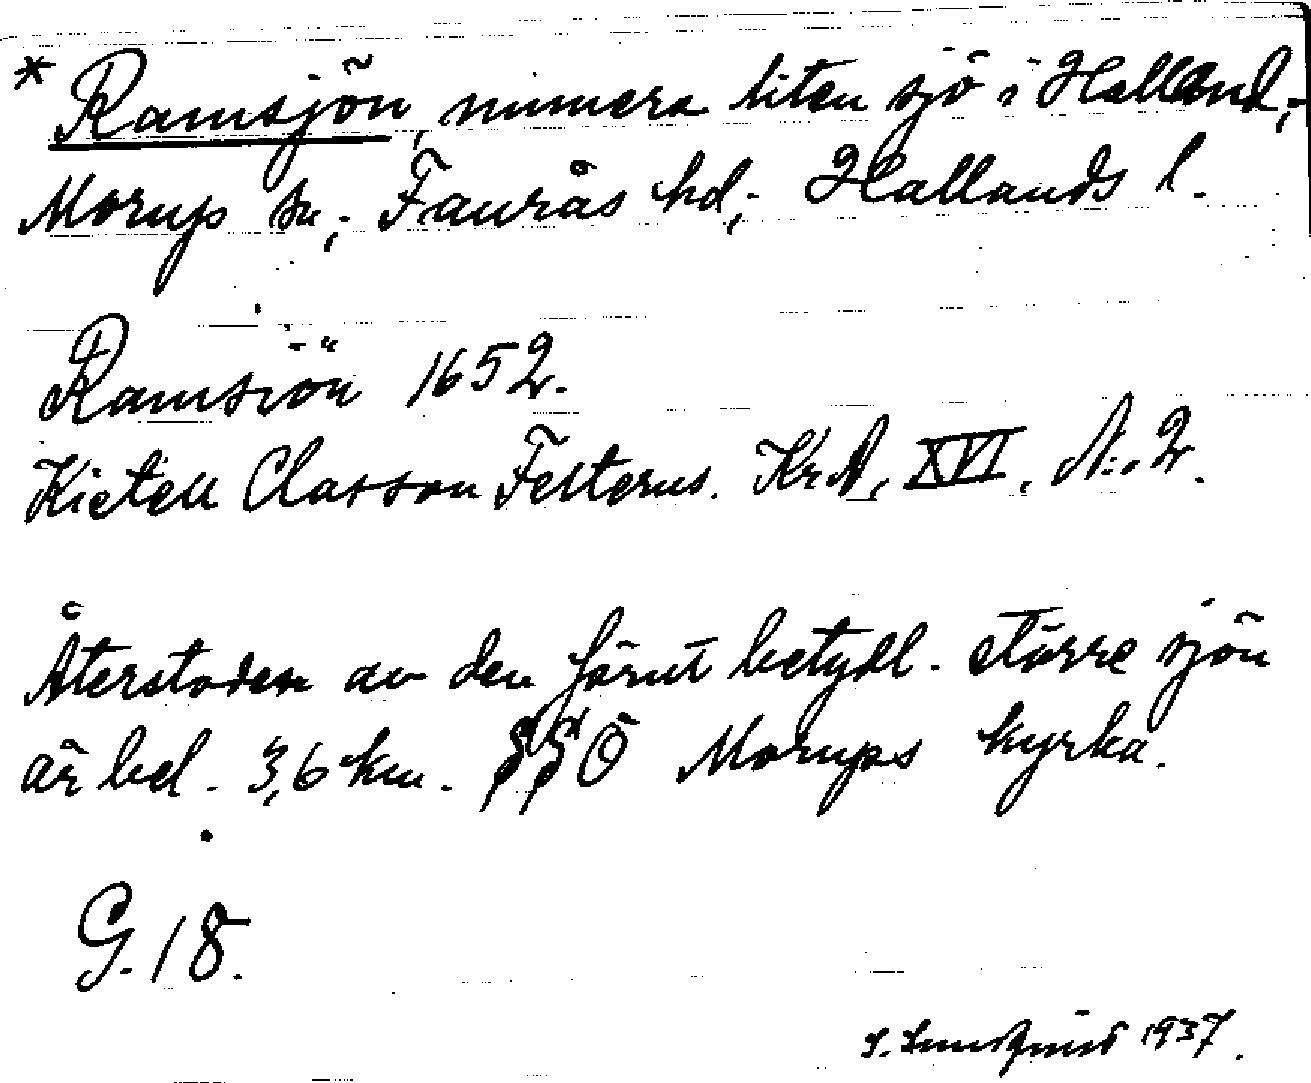 * Ramsjön, numera liten sjö i Halland,
Morup sn, Faurås hd, Hallands l.
Ramsiön 1652.
Kietell Classon Felterus. KrA, XVI, N:. 2.
Återstoden av den förut betydl. större sjön
är bel. 3,6 km. SSÖ Morups kyrka.
G. 18.
1937.